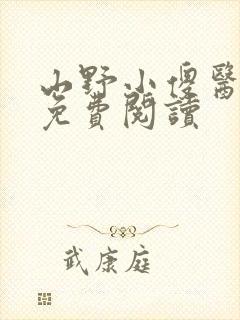 山野小傻醫
免費閱讀
武康庭